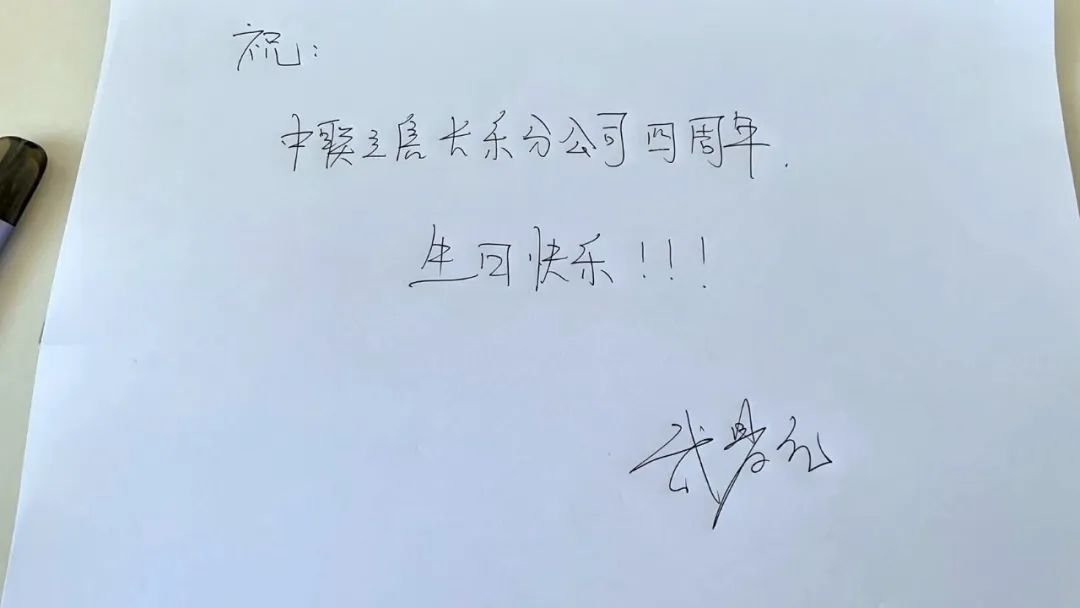 祝：
中联长乐分公司四周年.
生日快乐！！！